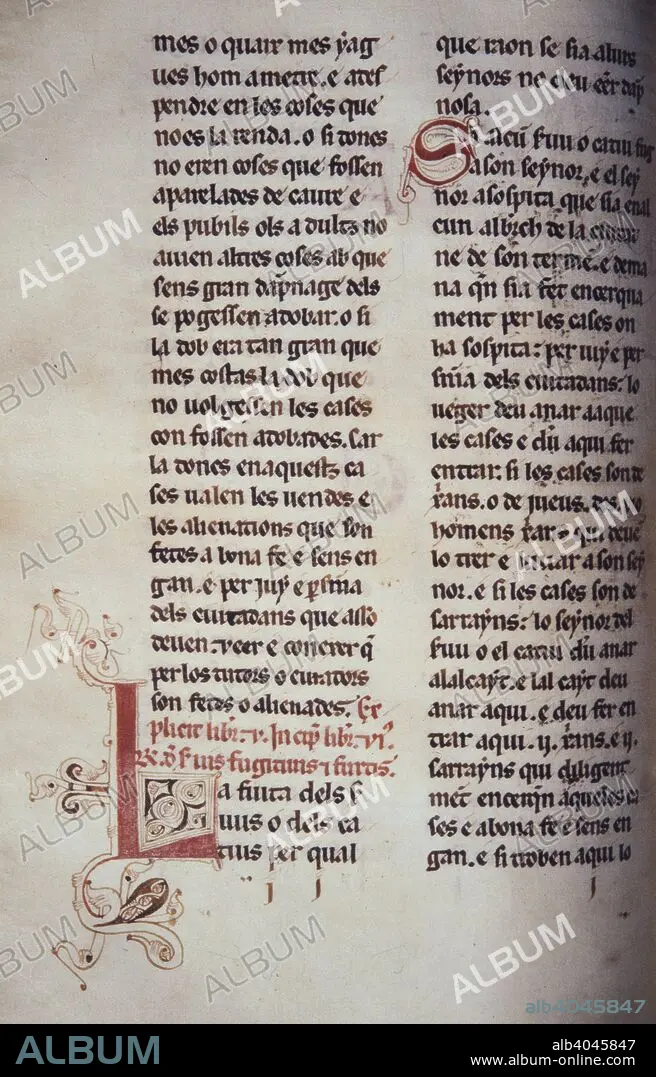 mes o quatr mes yag
ues hom a metre. e a res
pendre en les coses que
no es la renda. o si dones
no eren coses que fossen
aparelades de caure e
els pubils ols adultz no
auien altres coses ab que
sens gran dap̄nage dels
se pogessen adobar. o si
la dob era tan gran que
mes costas la dob que
no uolgessen les cases
con fossen adobades. Car
ladones en aquestz ca
ses ualen les uendes e
les alienations que son
fetes a bona fe e sens en
gan. e per iuy e
dels ciutadans que asso
deuen: ueer e conexer q̄
per los tutors o curadors
son fetes o alienades. Ex
plicit lib. v. Incip̄ lib. vi.
fugitiuis i furtis.
La fuita dels s
uus o dels ca
tius per qual
que raon se sia a lurs
seynors no deu eēr dap̄
nosa.
Si alcū fuu o catiu fug
a son seynor. e el sey
nor a sospita que sia en al
cun alberch de la ciutat
ne de son terme. e dema
na qn̄ sia fet encerqua
ment per les cases on
ha sospita: per iuy e per
sn̄ia dels ciutadans: lo
ueger deu anar a aque
les cases e dū aqui fer
entrar. si les cases son de
x̄rans. o de jueus.
homens
lo trer e liurar a son sey
nor. e si les cases son de
sarrayns: lo seynor del
fuu o el catiu dū anar
al alcayt. e lalcayt deu
anar aqui. e deu fer en
trar aqui. ij. x̄rans. e ij.
sarrayns qui diligent
met̄ encerqn̄ aqueles ca
ses e a bona fe e sens en
gan. e si troben aqui lo
ALBUM
alb4045847
ALBUM
alb4045847
www.album-online.com